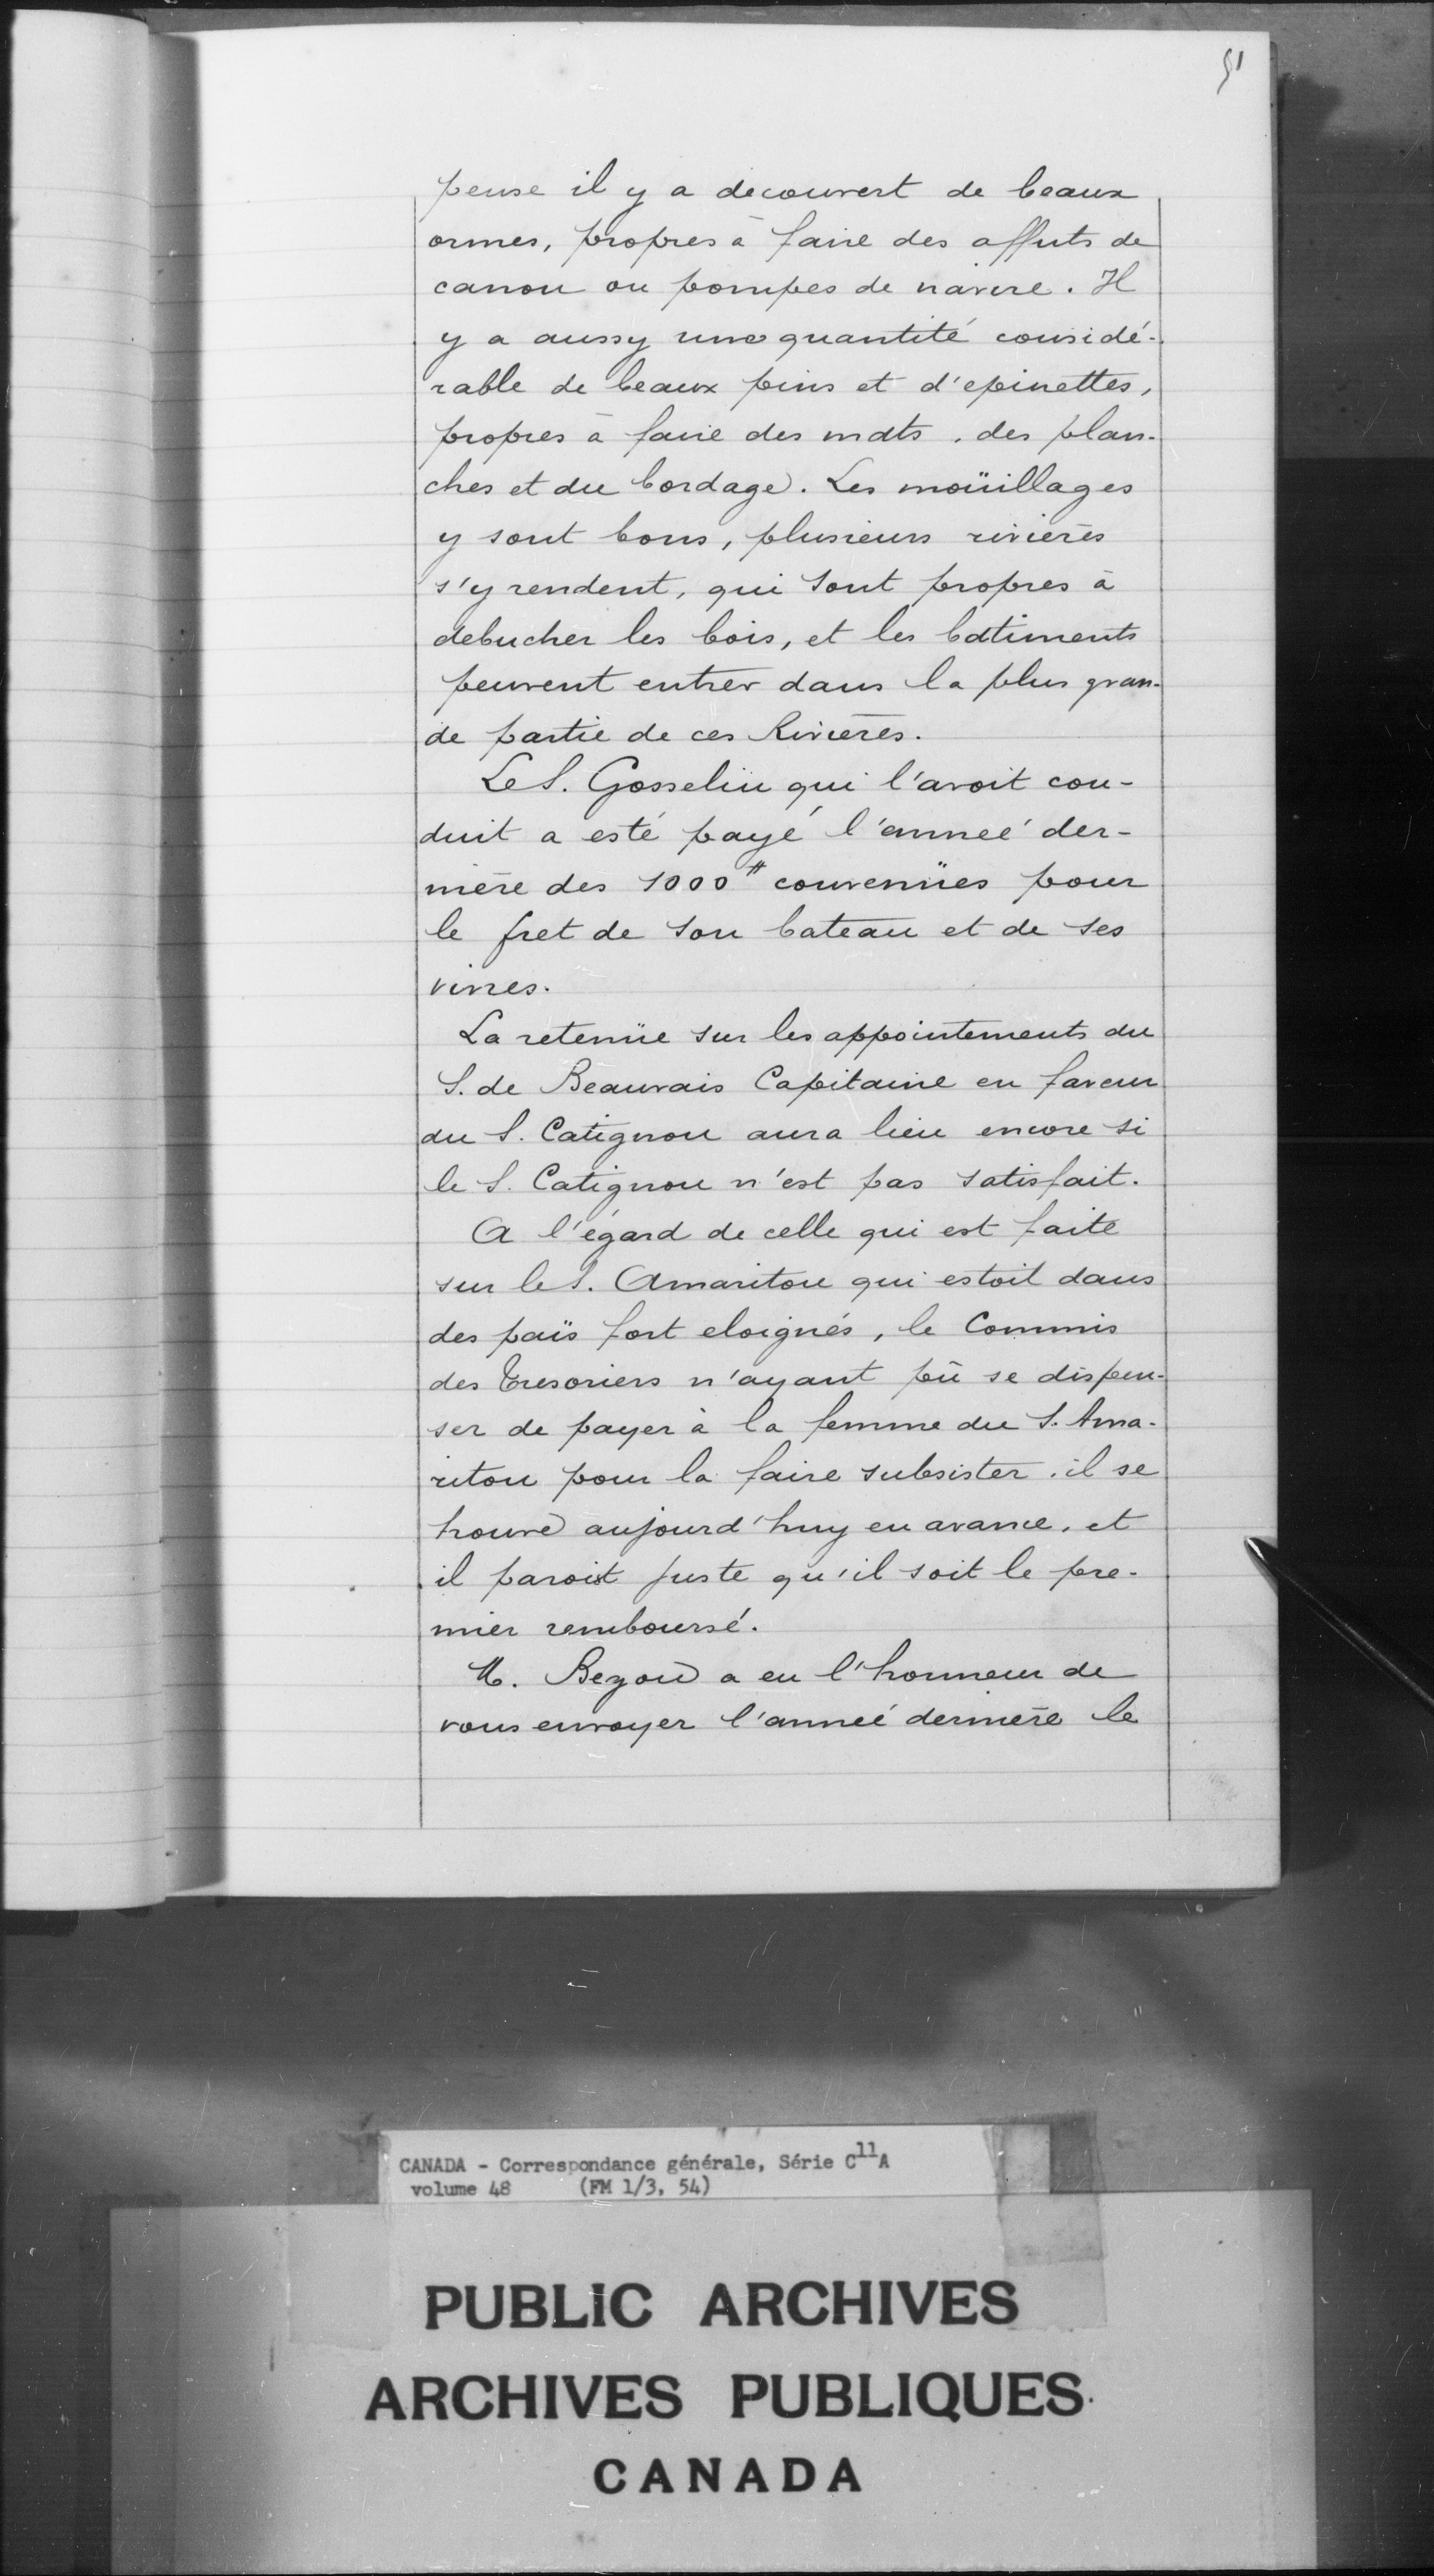 51
pense il y a decouvert de beaux
ormes, propres à faire des affuts de
canon ou pompes de navire. Il
y a aussy une quantité considé-
rable de beaux pins et d'epinettes,
propres à faire des mats, des plan-
ches et du bordage. Les moüillages
y sont bons, plusieurs rivières
s'y rendent, qui sont propres à
debucher les bois, et les batiments
peuvent entrer dans la plus gran-
de partie de ces Rivières.
Le S. Gosselin qui l'avoit con-
duit a esté payé l'anneé der-
nière des 1000# convenües pour
le fret de son bateau et de ses
vivres.
La retenüe sur les appointements du
S. de Beauvais Capitaine en faveur
du S. Catignon aura lieu encore si
le S. Catignon n'est pas satisfait.
A l'égard de celle qui est faite
sur le S. Amariton qui estoit dans
des païs fort eloignés, le Commis
des Tresoriers n'ayant pû se dispen-
ser de payer à la femme du S. Ama-
riton pour la faire subsister, il se
trouve aujourd'huy en avance, et
il paroist juste qu'il soit le pre-
mier remboursé.
M. Begon a eu l'honneur de
vous envoyer l'anneé dernière le
CANADA - Correspondance générale, Série C11A
volume 48 (FM 1/3, 54)
PUBLIC ARCHIVES
ARCHIVES PUBLIQUES
CANADA